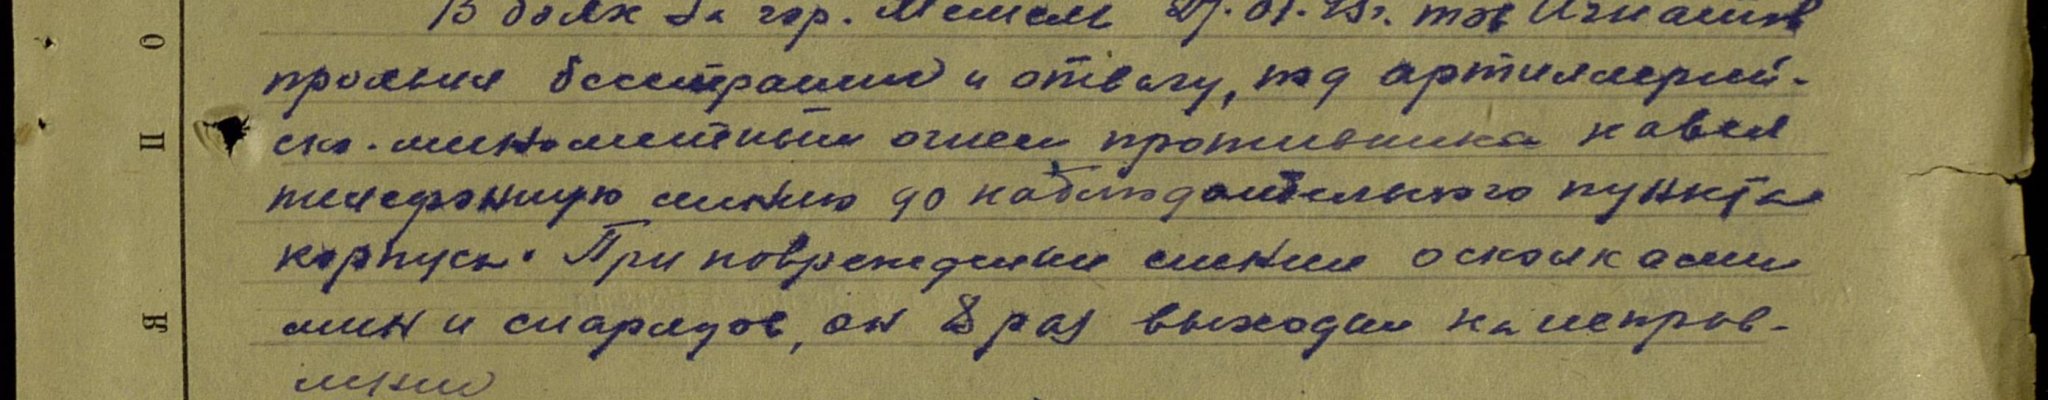 В боях за гор. Мемель 27.01.45г. тов Игнатов
проявил бесстрашие и отвагу, под артиллерий-
ско-минометным огнем противника навел
телефонную линию до наблюдательного пункта
корпуса. При повреждении линии осколками
мин и снарядов, он 8 раз выходил на исправ-
ление
О
П
В